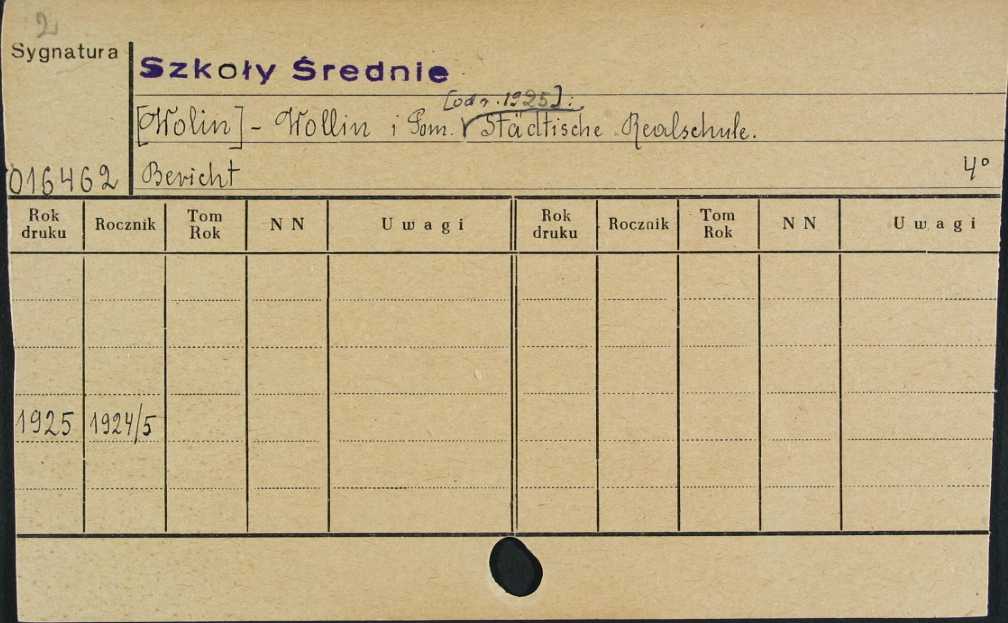 2
Sygnatura
Szkoły Średnie
[od r. 1925]:
[Wolin] - Wollin i Pom. Städtische Realschule.
016462
Bericht 4°
Rok druku Rocznik Tom Rok NN Uwagi Rok druku Rocznik Tom Rok NN Uwagi
1925 1924/5